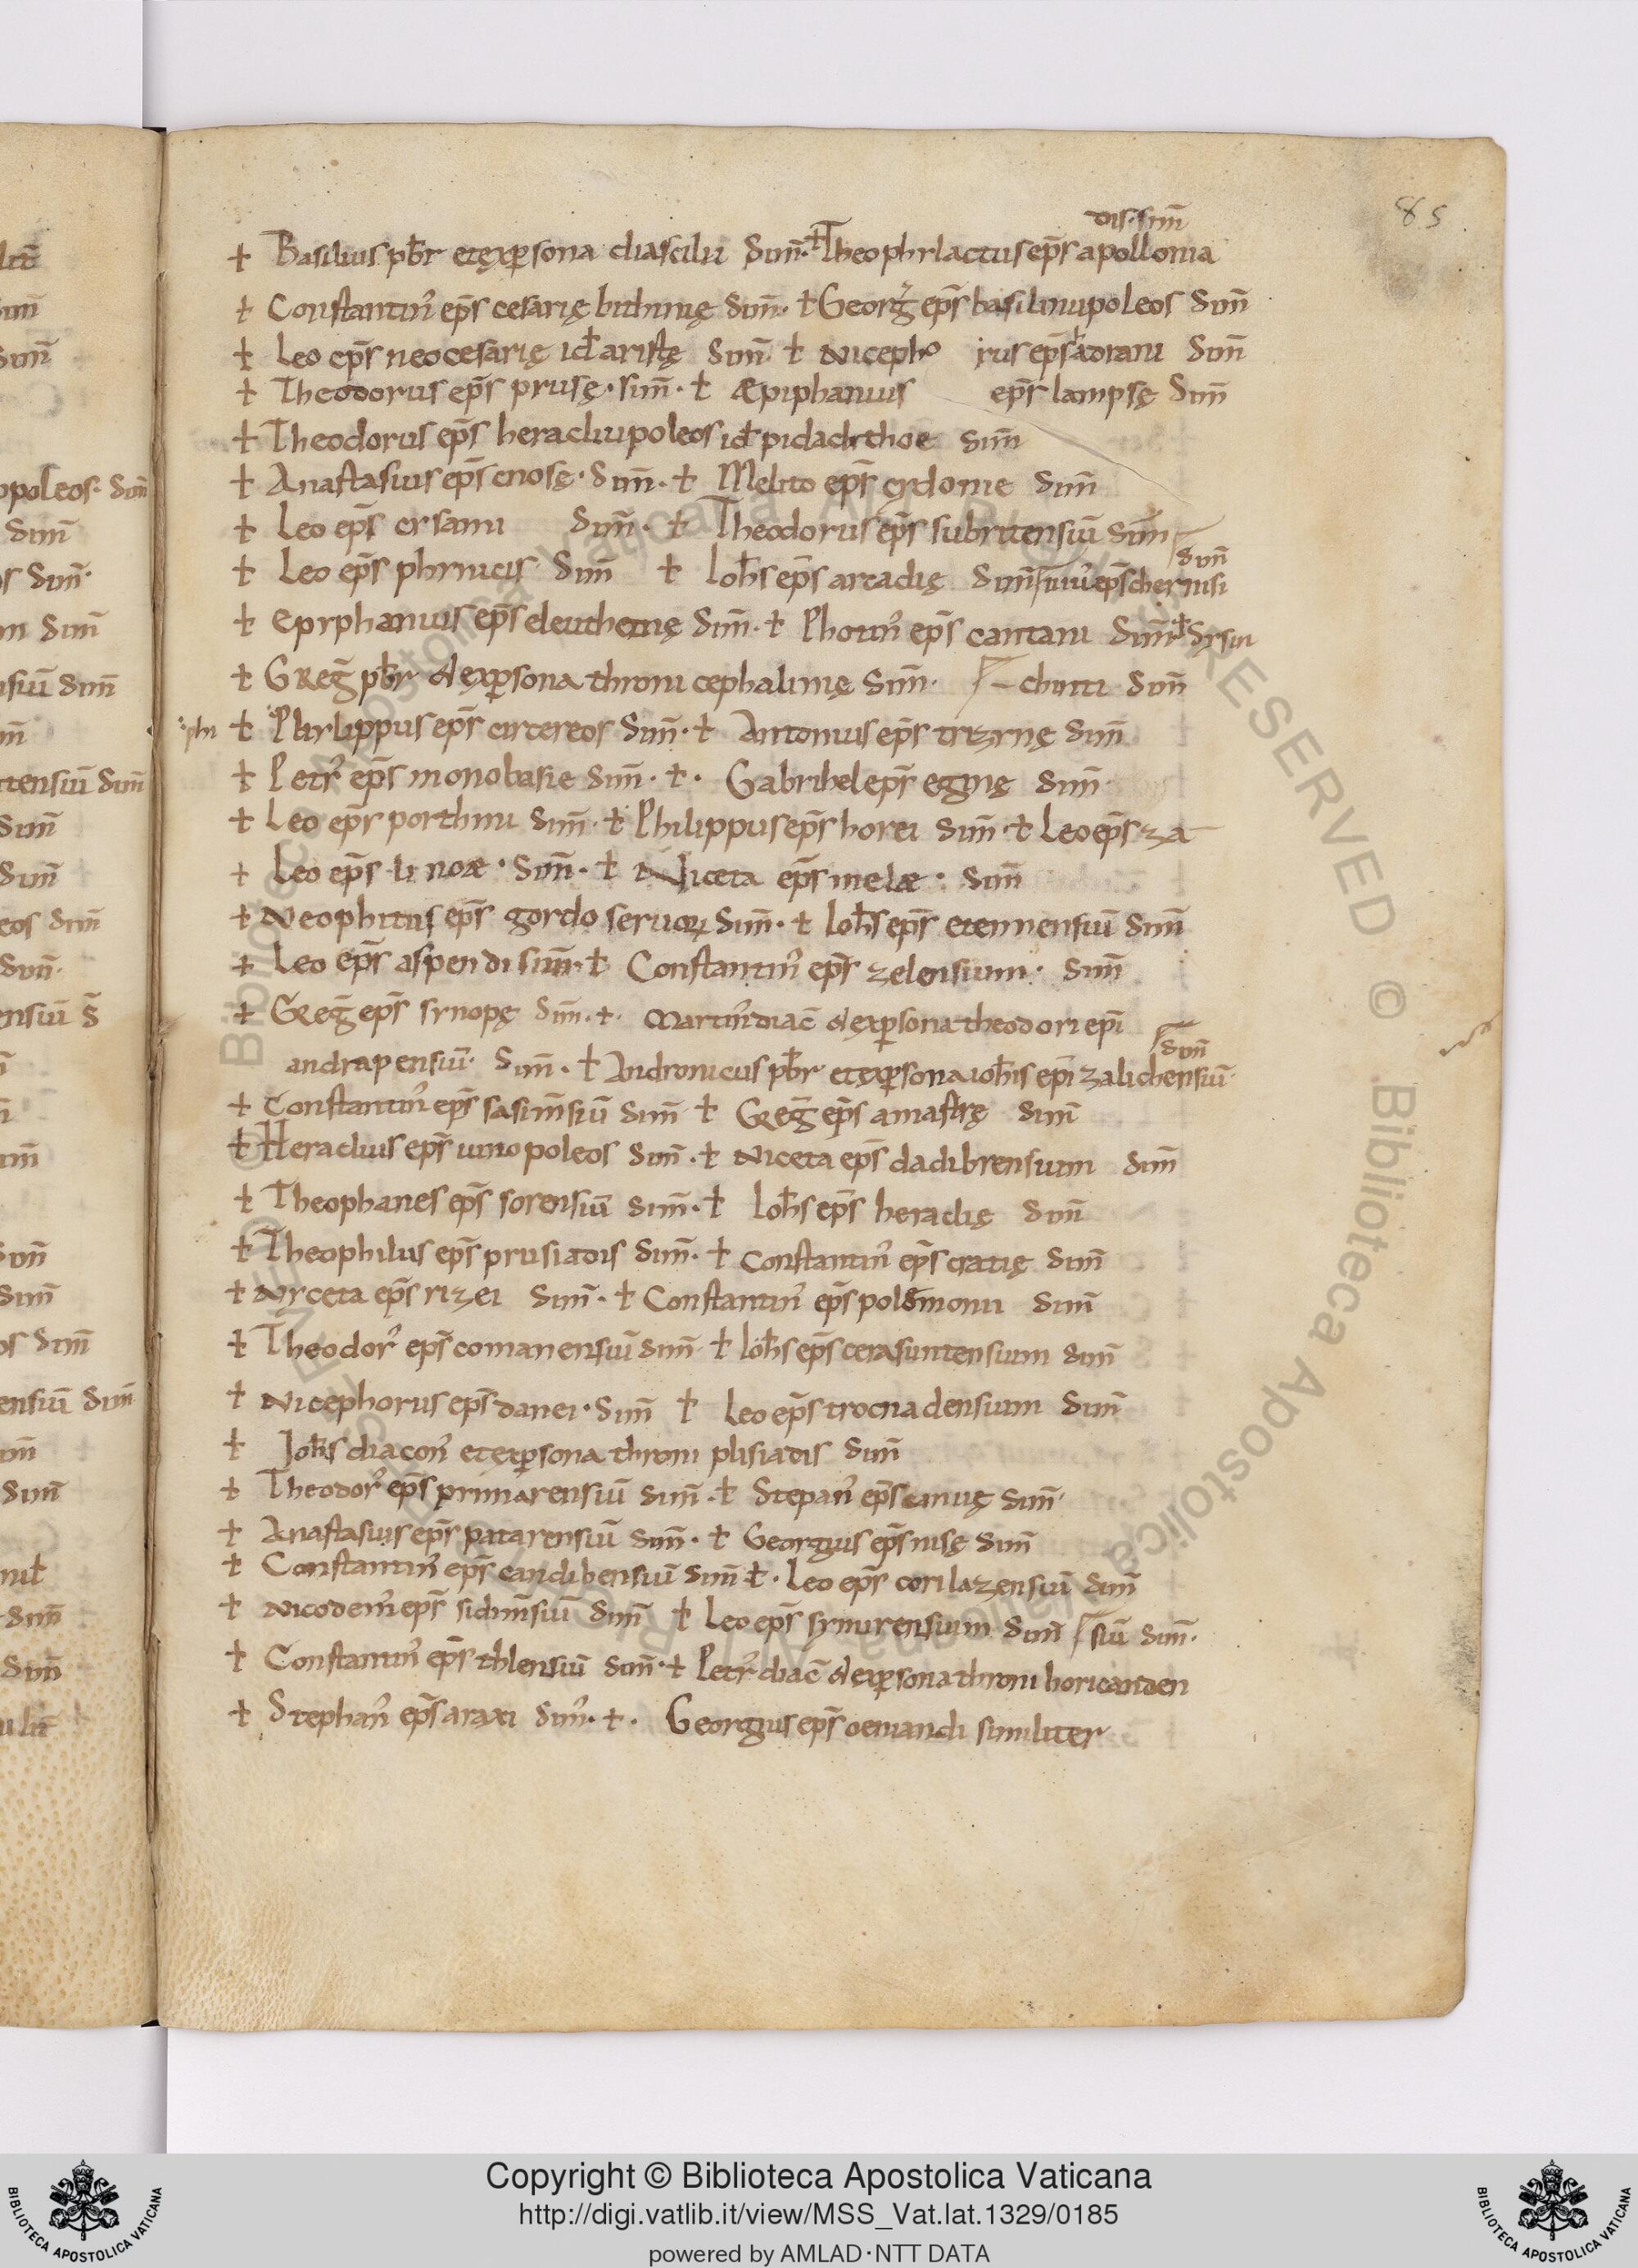 85
dis· sim̄
+ Basilius pƀr et ex ꝑsona diascilii Sim̄· + Theophylactus ep̄s apollonia
+ Constantin᾽ ep̄s cesarię bithinię sim̄· + Georḡ ep̄s basilinupoleos Sim̄
+ Leo ep̄s neocesarię id aristę Sim̄ + Nicepho rus ep̄s adrani Sim̄
+ Theodorus ep̄s prusę· sim̄· + Æpiphanius ep̄s lampsę Sim̄
+ Theodorus ep̄s heracliupoleos id pidachthoe sim̄
+ Anastasius ep̄s cnosę· Sim̄· + Melito ep̄s cydonie Sim̄
+ Leo ep̄s cisami Sim̄· + Theodorus ep̄s subritensiū Sim̄
sim̄
+ Leo ep̄s phinicis Sim̄ + Ioħs ep̄s arcadię Sim̄ niu᾽ ep̄s chernisi
+ Epyphanius ep̄s eleuthernę Sim̄· + Photin᾽ ep̄s cantani Sim̄· + Sisin
+ Greḡ pƀr & ex ꝑsona throni cephalinię Sim̄· chinti Sim̄
phi + Phylippus ep̄s circereos Sim̄· + Antonius ep̄s trizynę Sim̄
+ Petr᾽ ep̄s monobasie Sim̄· +· Gabrihel ep̄s eginę sim̄
+ Leo ep̄s porthmi Sim̄· + Philippus ep̄s horei Sim̄· + Leo ep̄s za
+ Leo ep̄s li noæ· Sim̄· + Niceta ep̄s melæ· Sim̄
+ Neophitus ep̄s gordo seruoꝝ Sim̄· + Ioħs ep̄s etennensiū Sim̄
+ Leo ep̄s aspendi sim̄· + Constantin᾽ ep̄s zelensium· Sim̄
+ Greḡ ep̄s synopę Sim̄· +· Martin᾽ diac̄ & ex ꝑsona theodori ep̄i
sim̄
andrapensiū· Sim̄· + Andronicus pƀr et ex ꝑsona ioħis ep̄i zalichensiū·
+ Constantin᾽ ep̄s sasim̄siū Sim̄ + Greḡ ep̄s amastrę Sim̄
+ Heraclius ep̄s iunopoleos Sim̄· + Niceta ep̄s dadibrensium sim̄
+ Theophanes ep̄s sorensiū Sim̄· + Ioħs ep̄s heraclię Sim̄
+ Theophilus ep̄s prusiadis Sim̄· + Constantin᾽ ep̄s cratię Sim̄
+ Nyceta ep̄s rizei Sim̄· + Constantin᾽ ep̄s polemonii Sim̄
+ Theodor᾽ ep̄s comanensiū sim̄ + Ioħs ep̄s cerasuntensium sim̄
+ Nicephorus ep̄s danei· Sim̄ + Leo ep̄s trocnadensium Sim̄
+ Ioħs diacon᾽ et ex ꝑsona throni plisiadis Sim̄
+ Theodor᾽ ep̄s pinnarensiū Sim̄· + Stepan᾽ ep̄s canię Sim̄·
+ Anastasius ep̄s patarensiū Sim̄· + Georgius ep̄s nisę Sim̄
+ Constantin᾽ ep̄s candibensiū Sim̄ +· Leo ep̄s corilazensiū Sim̄
+ Nicodem᾽ ep̄s sidim̄siū Sim̄ + Leo ep̄s lymirensium Sim̄ siū Sim̄·
+ Constantin᾽ ep̄s thlensiū Sim̄· + Petr᾽ diac̄ & ex ꝑsona throni horicanden
+ Stephan᾽ ep̄s araxi Sim̄· +· Georgius ep̄s oeniandi similiter
Copyright © Biblioteca Apostolica Vaticana
http://digi.vatlib.it/view/MSS_Vat.lat.1329/0185
powered by AMLAD·NTT DATA